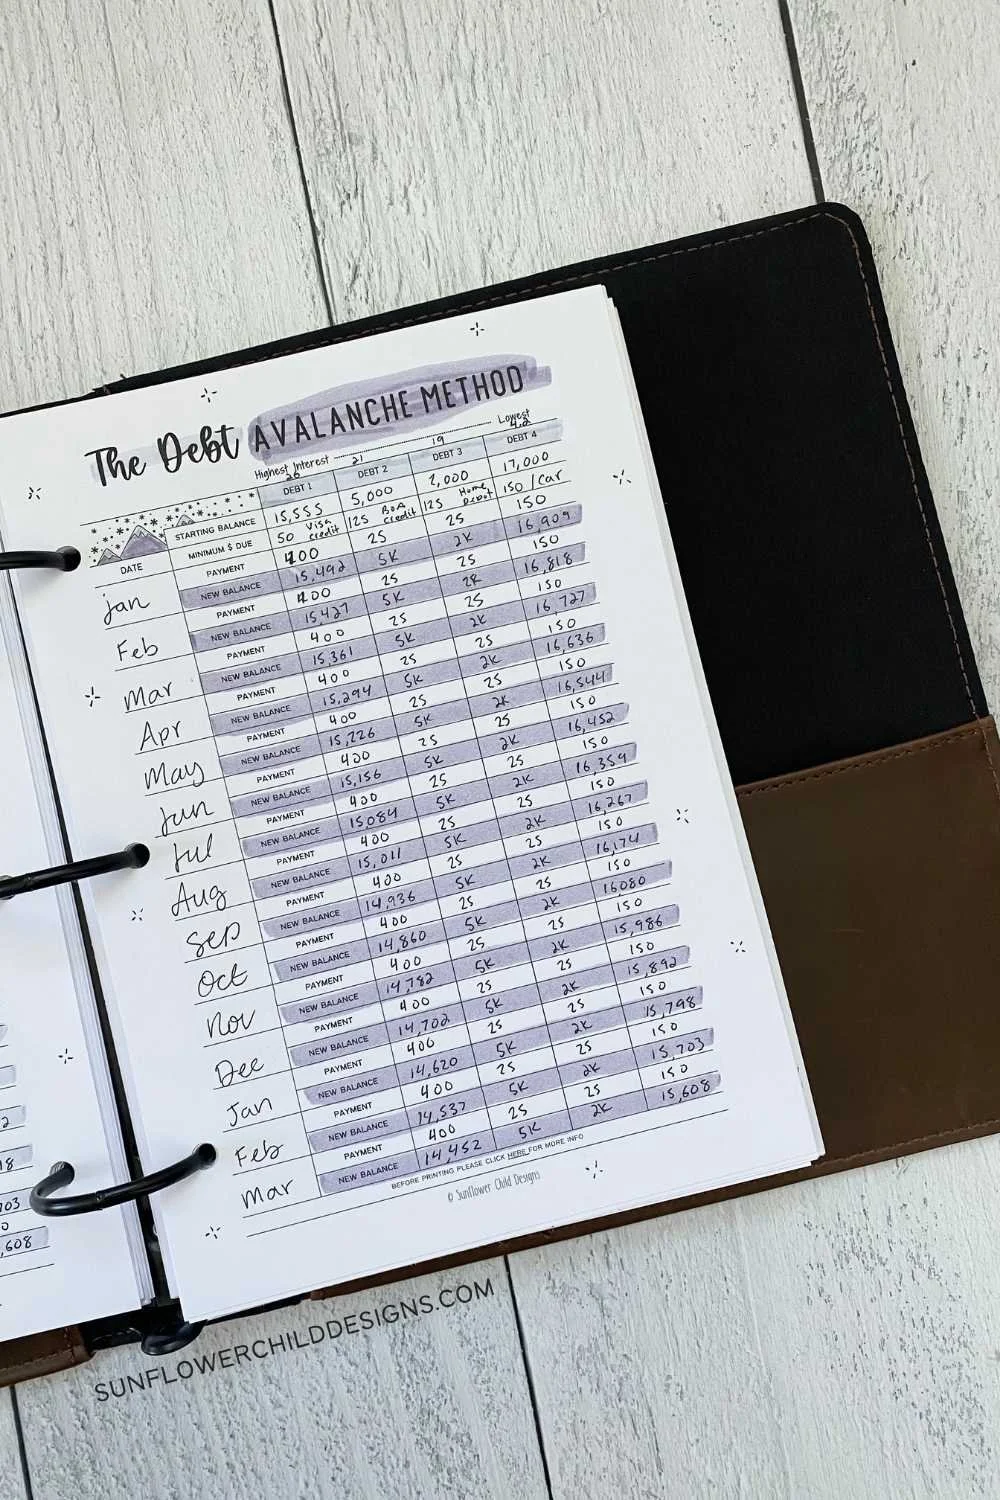 The Debt AVALANCHE METHOD
Highest Interest Lowest
26 21 19 4.2
DEBT 1 DEBT 2 DEBT 3 DEBT 4
STARTING BALANCE 15,555 5,000 2,000 17,000
MINIMUM $ DUE 50 Visa credit 125 BOA credit 125 Home Depot 150 /car
DATE PAYMENT 400 25 25 150
Jan NEW BALANCE 15,492 5K 2K 16,909
PAYMENT 400 25 25 150
Feb NEW BALANCE 15,427 5K 2K 16,818
PAYMENT 400 25 25 150
Mar NEW BALANCE 15,361 5K 2K 16 727
PAYMENT 400 25 25 150
Apr NEW BALANCE 15,294 5K 2K 16,636
PAYMENT 400 25 25 150
May NEW BALANCE 15,226 5K 2K 16,544
PAYMENT 400 25 25 150
Jun NEW BALANCE 15,156 5K 2K 16,452
PAYMENT 400 25 25 150
Jul NEW BALANCE 15084 5K 2K 16,359
PAYMENT 400 25 25 150
Aug NEW BALANCE 15,011 5K 2K 16,267
PAYMENT 400 25 25 150
Sep NEW BALANCE 14,936 5K 2K 16,174
PAYMENT 400 25 25 150
Oct NEW BALANCE 14,860 5K 2K 16080
PAYMENT 400 25 25 150
Nov NEW BALANCE 14,782 5K 2K 15,986
PAYMENT 400 25 25 150
Dec NEW BALANCE 14,702 5K 2K 15,892
PAYMENT 400 25 25 150
Jan NEW BALANCE 14,620 5K 2K 15,798
PAYMENT 400 25 25 150
Feb NEW BALANCE 14,537 5K 2K 15,703
PAYMENT 400 25 25 150
Mar NEW BALANCE 14,452 5K 2K 15,608
BEFORE PRINTING PLEASE CLICK HERE FOR MORE INFO
© Sunflower Child Designs
SUNFLOWERCHILDDESIGNS.COM